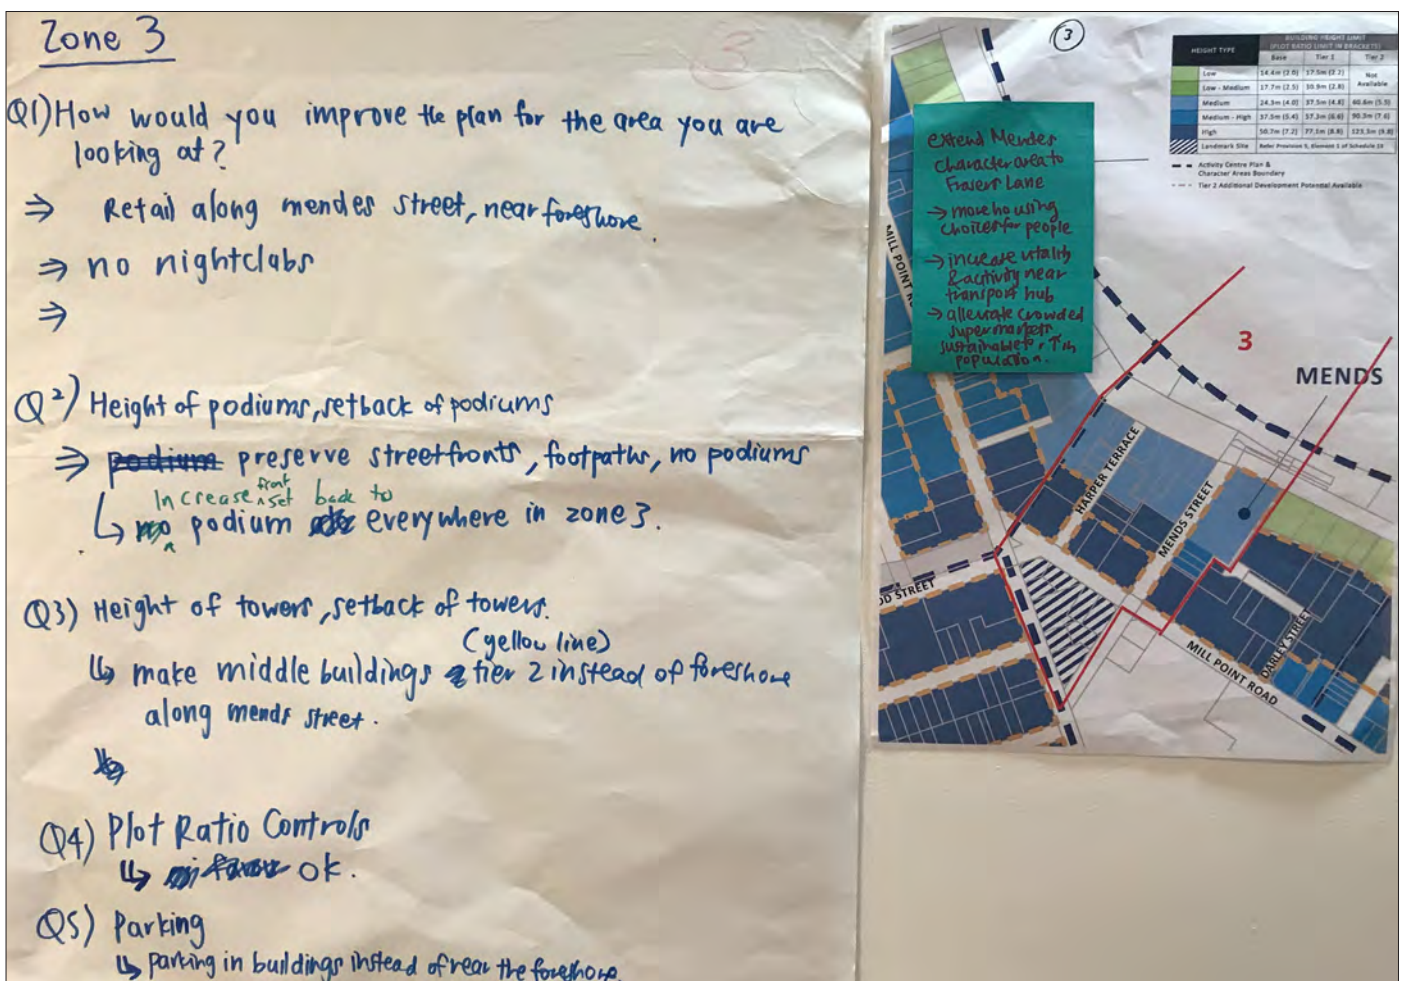 Zone 3
3
Q1) How would you improve the plan for the area you are
looking at?
⇒ Retail along mendes street, near foreshore.
⇒ no nightclubs
⇒
Q2) Height of podiums, setback of podiums
⇒ podium preserve streetfronts, footpaths, no podiums
Increase front set back to
↳ no podium everywhere in zone 3.
Q3) Height of towers, setback of towers.
(yellow line)
↳ make middle buildings tier 2 instead of foreshore
along mends street.
Q4) Plot Ratio Controls
↳ ok.
Q5) Parking
↳ parking in buildings instead of near the foreshore.
extend Mendes
character area to
Frasers Lane
→ more housing
choices for people
→ increase vitality
& activity near
transport hub
→ alleviate crowded
supermarkets
sustainable for ↑ in
population.
3
HEIGHT TYPE
BUILDING HEIGHT LIMIT
(PLOT RATIO LIMIT IN BRACKETS)
Base Tier 1 Tier 2
Low 14.4m (2.0) 17.5m (2.2) Not Available
Low - Medium 17.7m (2.5)
Medium 24.3m (4.0) 37.5m (4.8) 60.6m (5.5)
Medium - High 37.5m (5.4) (6.6) 90.3m (7.6)
High 50.7m (7.2) 77.1m (8.8) 123.3m (9.8)
Landmark Site Refer Provision 5, Element 1 of Schedule
Activity Centre Plan &
Character Areas Boundary
Tier 2 Additional Development Potential Available
MILL POINT
3
MENDS
HARPER TERRACE
MENDS STREET
OD STREET
DARLEY STREET
MILL POINT ROAD